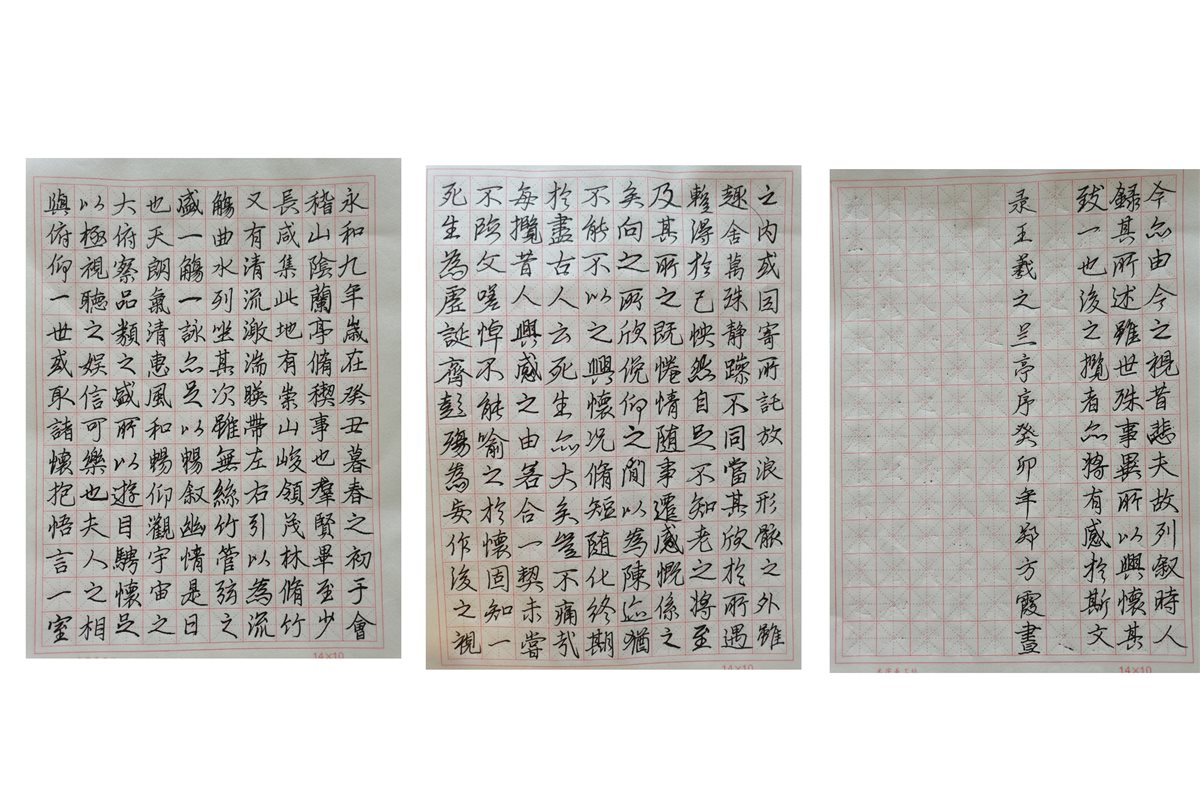 永和九年歲在癸丑暮春之初于會
稽山陰蘭亭脩稧事也羣賢畢至少
長咸集此地有崇山峻領茂林脩竹
又有清流激湍暎帶左右引以為流
觴曲水列坐其次雖無絲竹管弦之
盛一觴一詠亦足以暢叙幽情是日
也天朗氣清惠風和暢仰觀宇宙之
大俯察品類之盛所以遊目騁懷足
以極視聽之娛信可樂也夫人之相
與俯仰一世或取諸懷抱悟言一室
14×10
之内或因寄所託放浪形骸之外雖
趣舍萬殊静躁不同當其欣於所遇
蹔得於己怏然自足不知老之將至
及其所之既惓情随事遷感慨係之
矣向之所欣俛仰之閒以為陳迹猶
不能不以之興懷況脩短随化終期
於盡古人云死生亦大矣豈不痛哉
每攬昔人興感之由若合一契未嘗
不臨文嗟悼不能喻之於懷固知一
死生為虛誕齊彭殤為妄作後之視
14×10
今亦由今之視昔悲夫故列叙時人
録其所述雖世殊事異所以興懷其
致一也後之攬者亦將有感於斯文
录王羲之兰亭序癸卯年郑方霞書
14×10